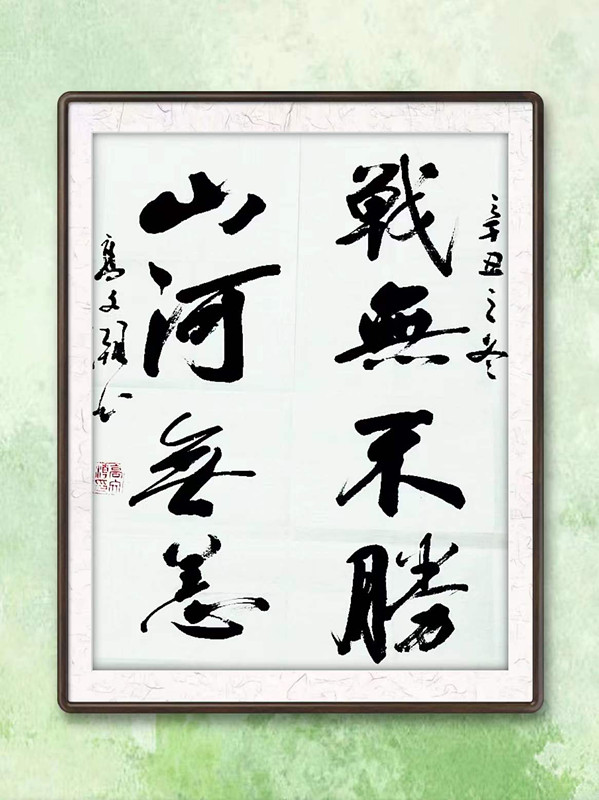 辛丑之冬
戰無不勝
山河無恙
文